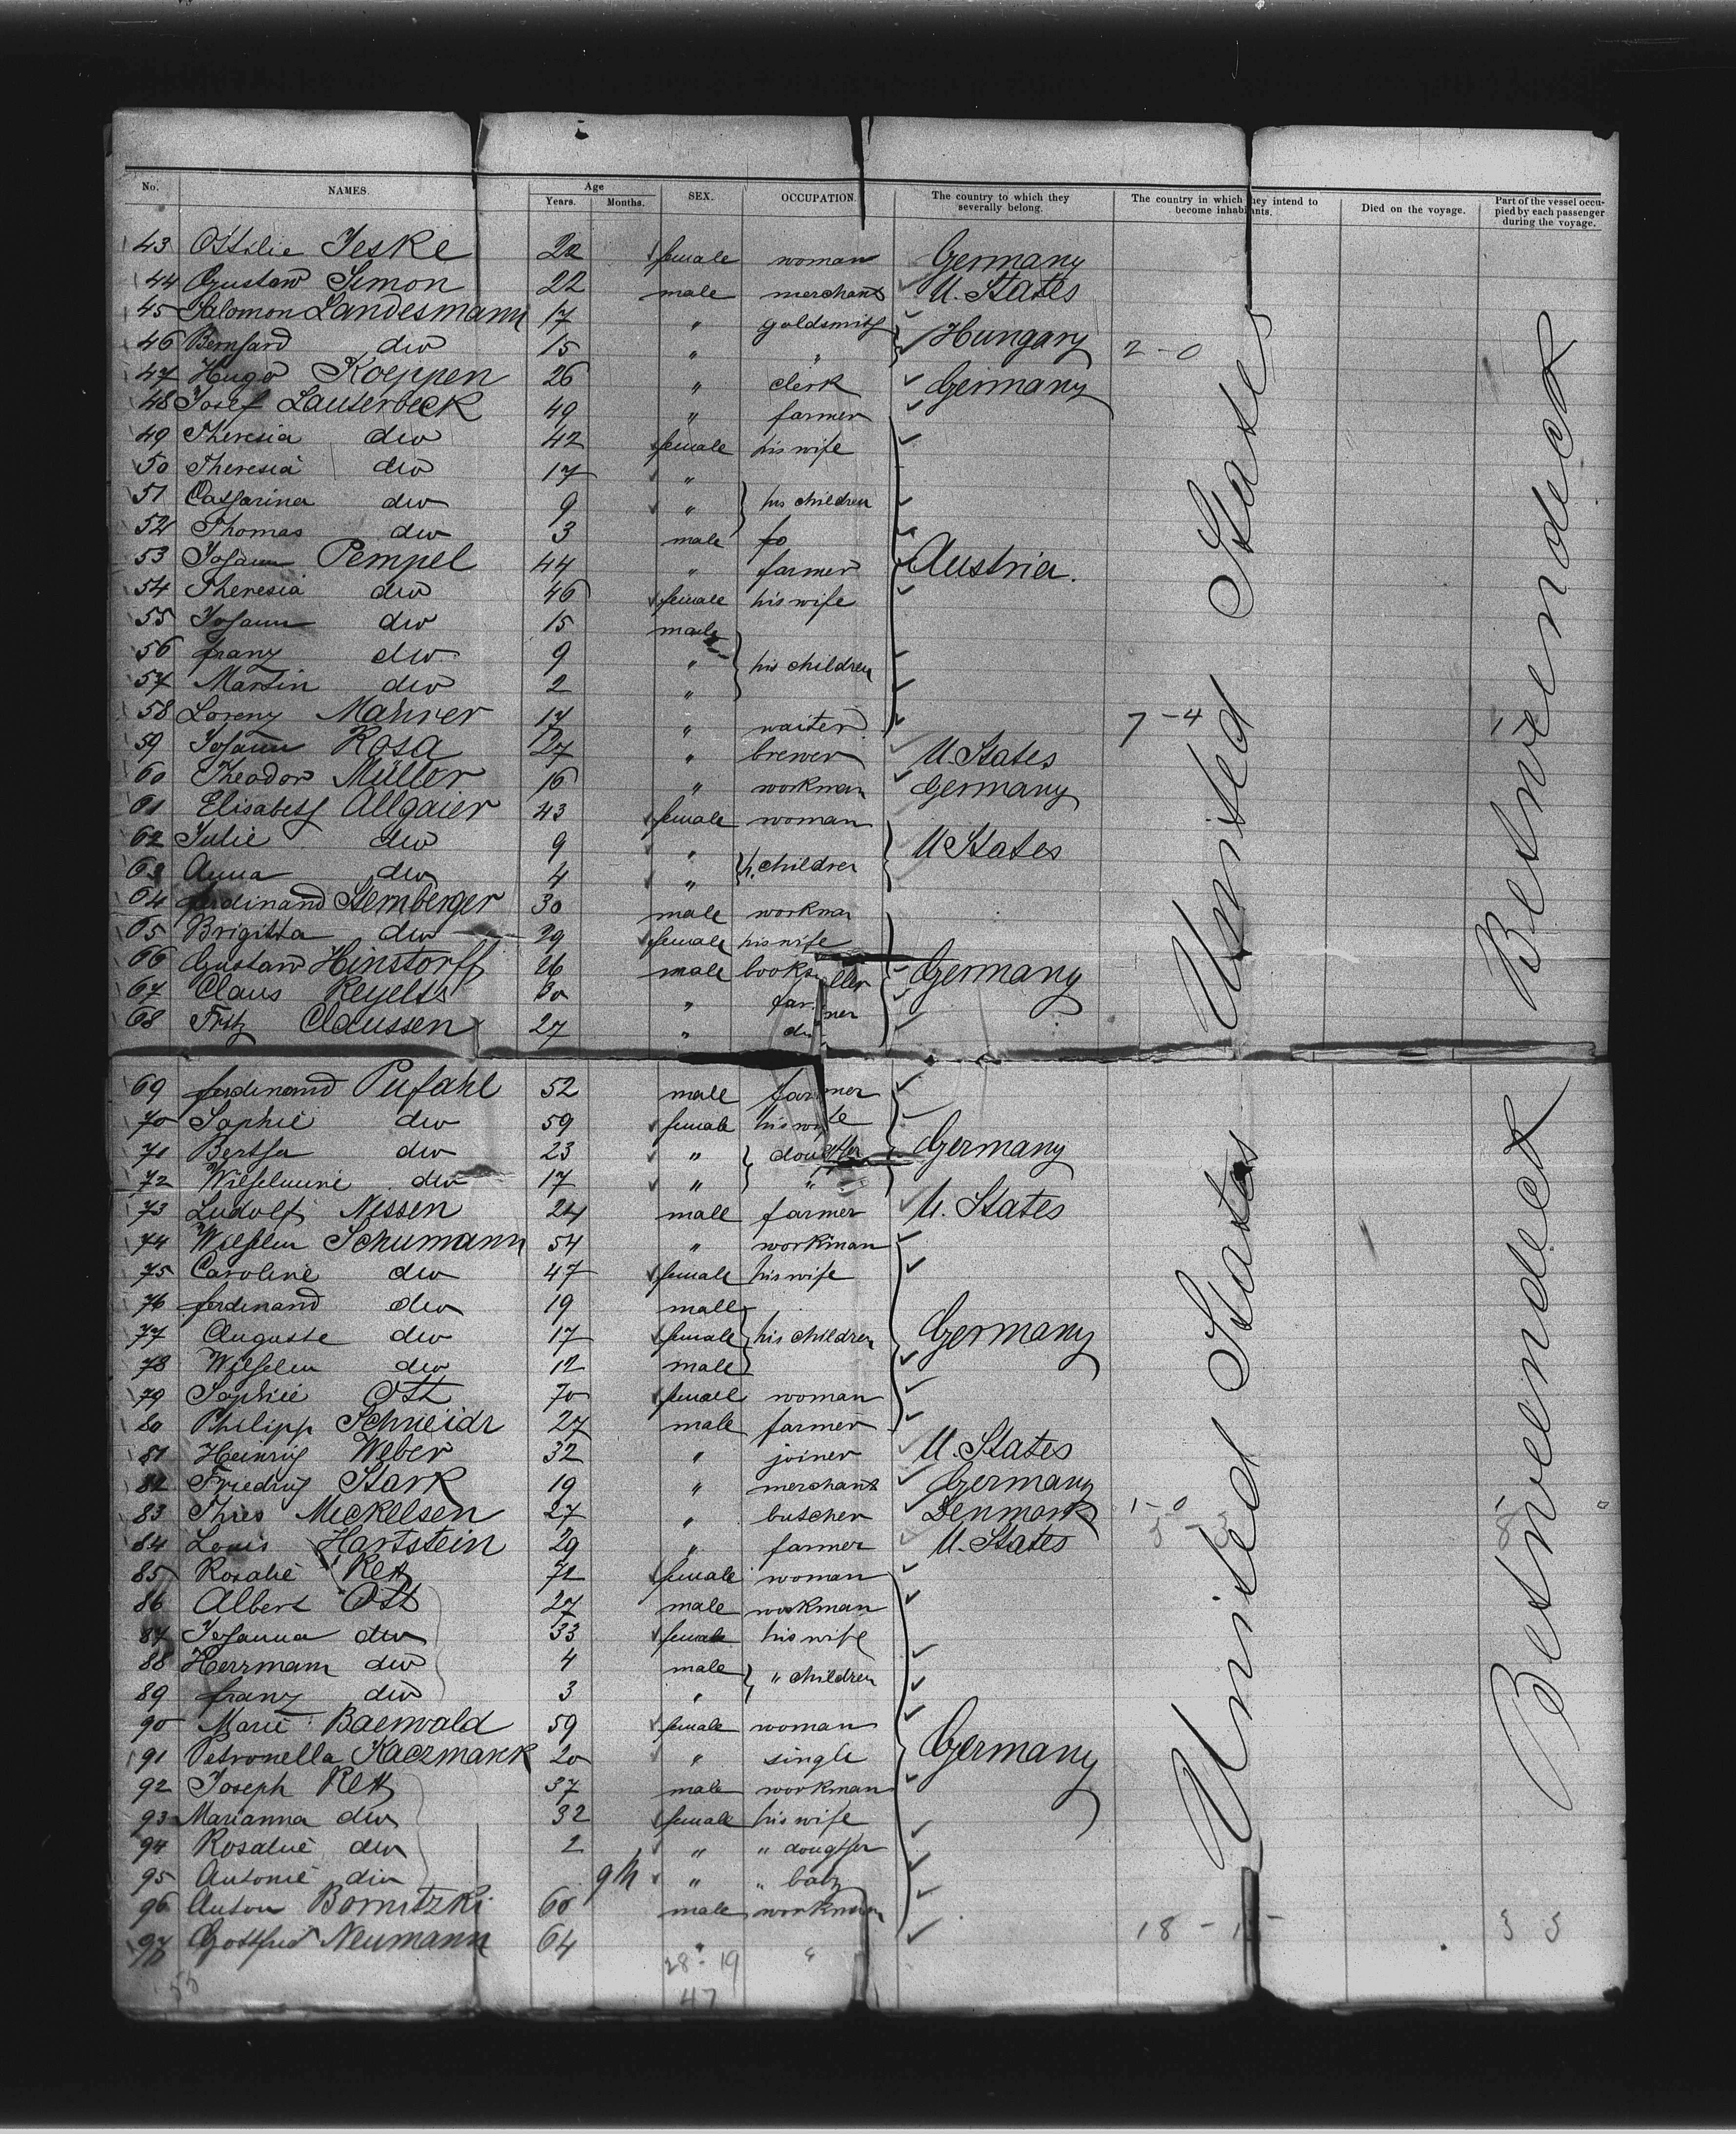 No. NAMES. Age Years. Months. SEX. OCCUPATION. The country to which they severally belong. The country in which they intend to become inhabitants. Died on the voyage. Part of the vessel occupied by each passenger during the voyage.
43 Ottilie Jeske 22 female woman Germany
44 Gustaw Simon 22 male merchant U. States
45 Salomon Landesmann 17 " goldsmith
46 Bernhard dio 15 " " Hungary 2-0
47 Hugo Koeppen 26 " clerk Germany
48 Josef Lauterbeck 49 " farmer
49 Theresia dio 42 female his wife
50 Theresia dio 17 "
51 Catharina dio 9 " his children
52 Thomas dio 3 male
53 Johann Pempel 44 " farmer Austria.
54 Theresia dio 46 female his wife
55 Johann dio 15 male
56 franz dio 9 " his children
57 Martin dio 2 "
58 Lorenz Mahrer 17 " waiter 7-4
59 Johann Rosa 27 " brewer U. States
60 Theodor Müller 16 " workman Germany
61 Elisabeth Allgaier 43 female woman
62 Julie dio 9 " U States
63 Anna dio 4 " h. children
64 ferdinand Stemberger 30 male workman
65 Brigitta dio 29 female his wife
66 Gustaw Hinstorff 26 male bookseller Germany
67 Claus Reyelts 30 " farmer
68 Fritz Claussen 27 " do
United States
Between deck
69 ferdinand Pufahl 52 male farmer
70 Sophie dio 59 female his wife
71 Bertha dio 23 " doughter Germany
72 Wilhelmine dio 17 " "
73 Ludolf Nissen 24 male farmer U. States
74 Wilhelm Schumann 54 " workman
75 Caroline dio 47 female his wife
76 ferdinand dio 19 male
77 Auguste dio 17 female his children Germany
78 Wilhelm dio 12 male
79 Sophie Ott 70 female woman
80 Philipp Schneidr 27 male farmer
81 Heinrig Weber 32 " joiner U. States
82 Friedrig Stark 19 " merchant Germany
83 Thies Mickelsen 27 " butcher Denmark 1-0
84 Louis Hartstein 29 " farmer U. States
85 Rosalie Rett 71 female woman
86 Albert Ott 27 male workman
87 Johanna dio 33 female his wife
88 Herrmann dio 4 male " children
89 franz dio 3 "
90 Marie Baerwald 59 female woman
91 Petronella Kaczmarek 20 " single Germany
92 Joseph Rett 37 male workman
93 Marianna dio 32 female his wife
94 Rosalie dio 2 " " doughter
95 Antonie dio 9 " " baby
96 Anton Bornitzki 60 male workman
97 Gottfried Neumann 64 " "
United States
Between deck
28-19
47